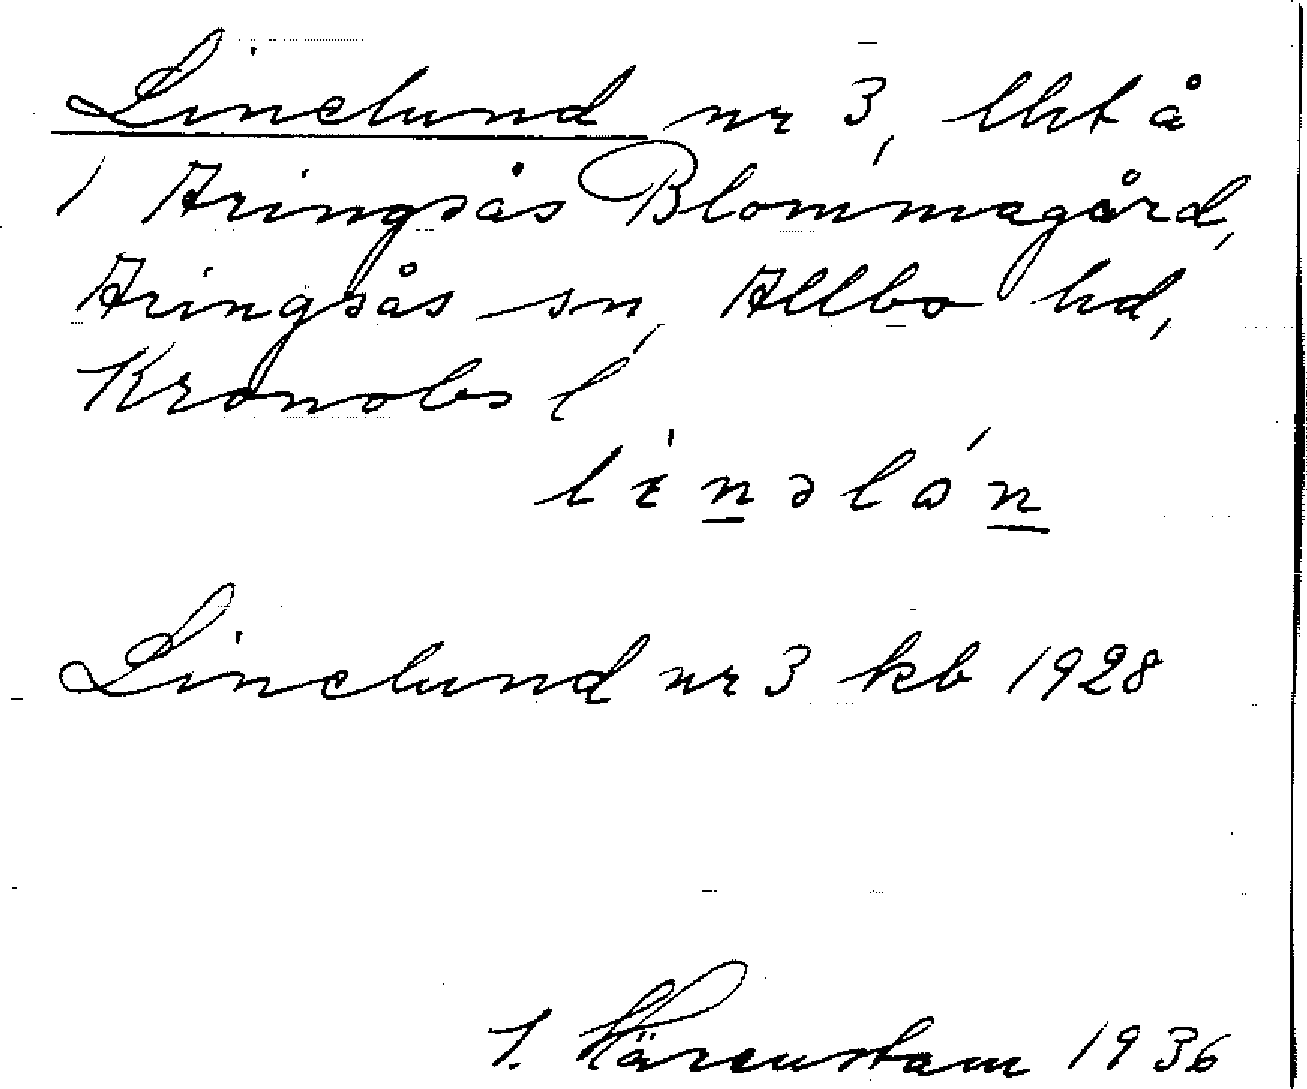 Linelund nr 3, lht å
1 Aringsås Blommagård,
Aringsås sn, Allbo hd,
Kronobs l
lı́nəlón
Linelund nr 3 kb 1928
Härenstam 1936